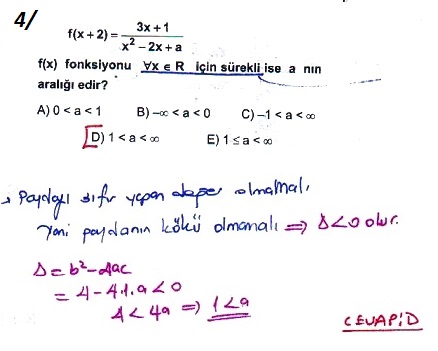 4/
f(x+2) = 3x+1 / x² − 2x + a
f(x) fonksiyonu ∀x ∈ R için sürekli ise a nın
aralığı edir?
A) 0 < a < 1 B) −∞ < a < 0 C) −1 < a < ∞
D) 1 < a < ∞ E) 1 ≤ a < ∞
→ Paydayı sıfır yapan değer olmamalı,
Yani paydanın kökü olmamalı ⇒ Δ<0 olur.
Δ = b² − 4ac
= 4 − 4.1.a < 0
4 < 4a ⇒ 1 < a
CEVAP: D